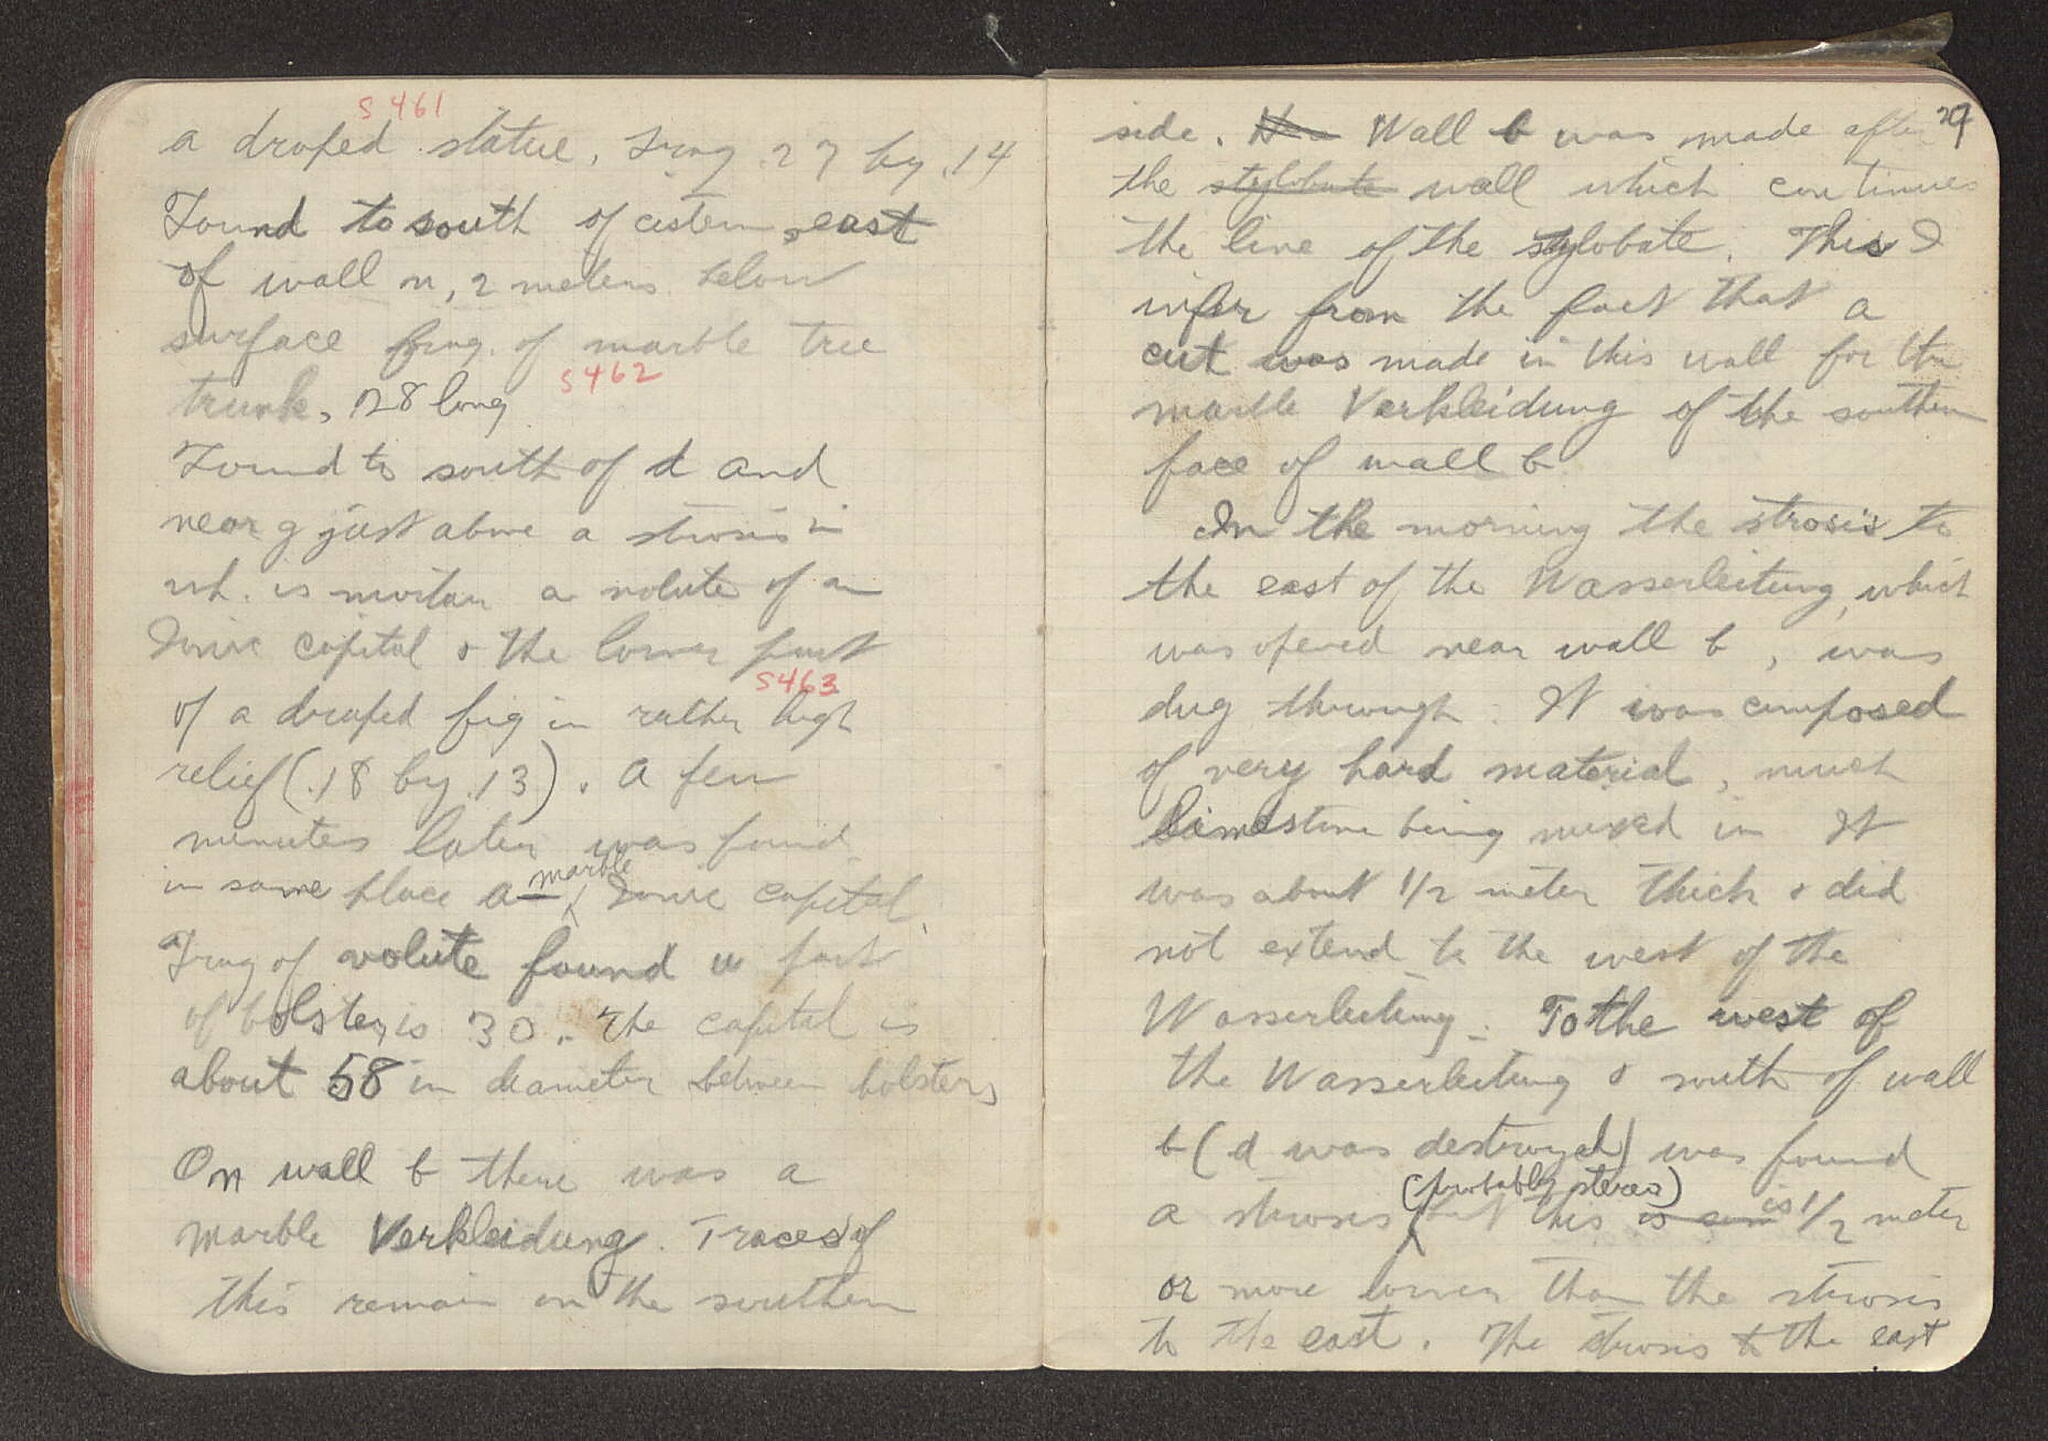 S 461
a draped statue, Frag .27 by .14
Found to south of cistern, east
of wall n, 2 meters below
surface frag. of marble tree
S 462
trunk, .28 long
Found to south of d and
near g just above a strosis in
wh. is mortar a volute of an
Ionic capital & the lower part
S 463
of a draped fig in rather high
relief (.18 by .13). A few
minutes later was found
in same place a marble Ionic capital.
Frag of volute found w part
of bolster, is 30. The capital is
about 58 in diameter between bolsters
On wall b there was a
marble Verkleidung. Traces of
this remain on the southern
29
side. Wall b was made after
the stylobate wall which continues
the line of the stylobate. This I
infer from the fact that a
cut was made in this wall for the
marble Verkleidung of the southern
face of wall b
In the morning the strosis to
the east of the Wasserleitung, which
was opened near wall b, was
dug through. It was composed
of very hard material, much
limestone being mixed in It
was about 1/2 meter thick & did
not extend to the west of the
Wasserleitung. To the west of
the Wasserleitung & south of wall
b (d was destroyed) was found
a strosis (probably stereo) but this is 1/2 meter
or more lower than the strosis
to the east. The strosis to the east